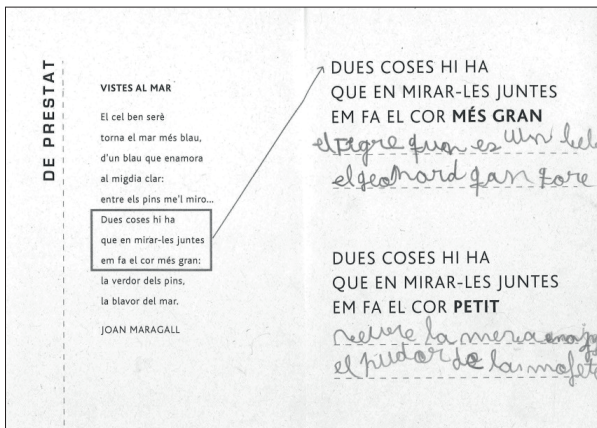 DE PRESTAT
VISTES AL MAR
El cel ben serè
torna el mar més blau,
d'un blau que enamora
al migdia clar:
entre els pins me'l miro...
Dues coses hi ha
que en mirar-les juntes
em fa el cor més gran:
la verdor dels pins,
la blavor del mar.
JOAN MARAGALL
DUES COSES HI HA
QUE EN MIRAR-LES JUNTES
EM FA EL COR MÉS GRAN
el tigre quan es un
DUES COSES HI HA
QUE EN MIRAR-LES JUNTES
EM FA EL COR PETIT
veure la meva
el pudor de las